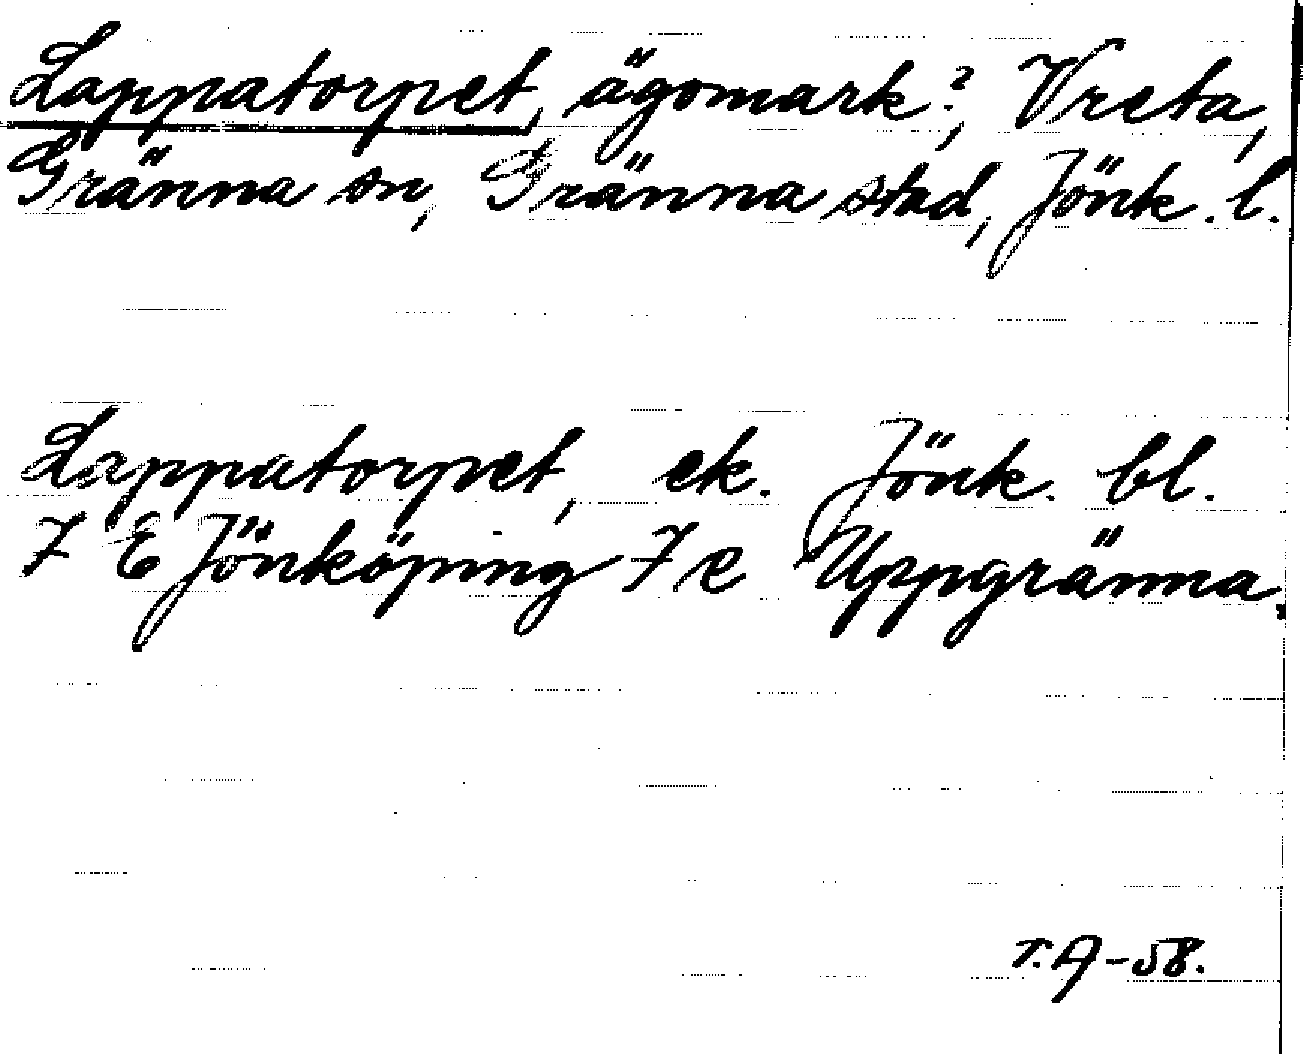 Lappatorpet, ägomark?, Vreta,
Gränna sn, Gränna stad, Jönk. l.
Lappatorpet, ek. Jönk. bl.
7 E Jönköping 7 e Uppgränna.
T.A-58.